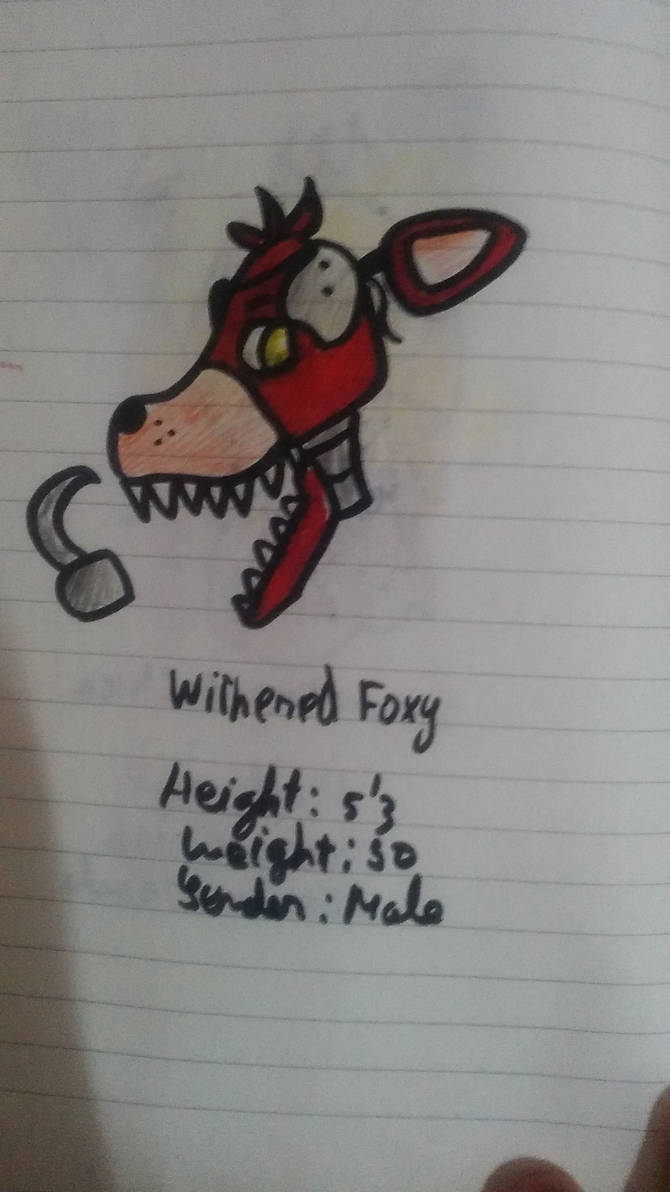 Withered Foxy
Height: 5'3
Weight: 50
Gender: Male